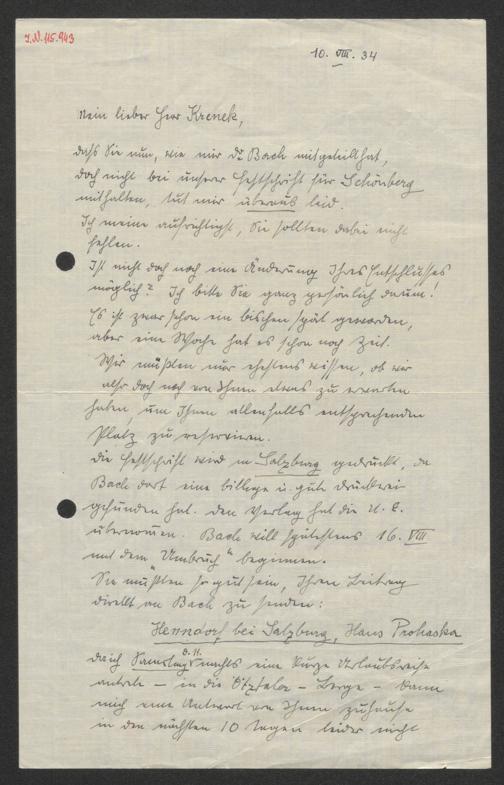 I.N. 115.943
10. VIII. 34
Mein lieber Herr Krenek,
daſs Sie nun, wie mir Dr Bach mitgeteilt hat,
doch nicht bei unserer Festschrift für Schönberg
mithalten, tut mir überaus leid.
Ich meine aufrichtigst, Sie sollten dabei nicht
fehlen.
Ist nicht doch noch eine Änderung Ihres Entschlusses
möglich? Ich bitte Sie ganz persönlich darum!
Es ist zwar schon ein bischen spät geworden,
aber eine Woche hat es schon noch Zeit.
Wir müßten nur ehestens wissen, ob wir
also doch noch von Ihnen etwas zu erwarten
haben, um Ihnen allenfalls entsprechenden
Platz zu reservieren.
Die Festschrift wird in Salzburg gedruckt, da
Bach dort eine billige u. gute Druckerei
gefunden hat. Den Verlag hat die U. E.
übernommen. Bach will spätestens 16. VIII
mit dem „Umbruch“ beginnen.
Sie müßten so gut sein, Ihren Beitrag
direkt an Bach zu senden:
Henndorf bei Salzburg, Hans Prohaska
Da ich Samstag d. 11. nachts eine kurze Urlaubsreise
antrete – in die Ötztaler – Berge – kann
mich eine Antwort von Ihnen zuhause
in den nächsten 10 Tagen leider nicht